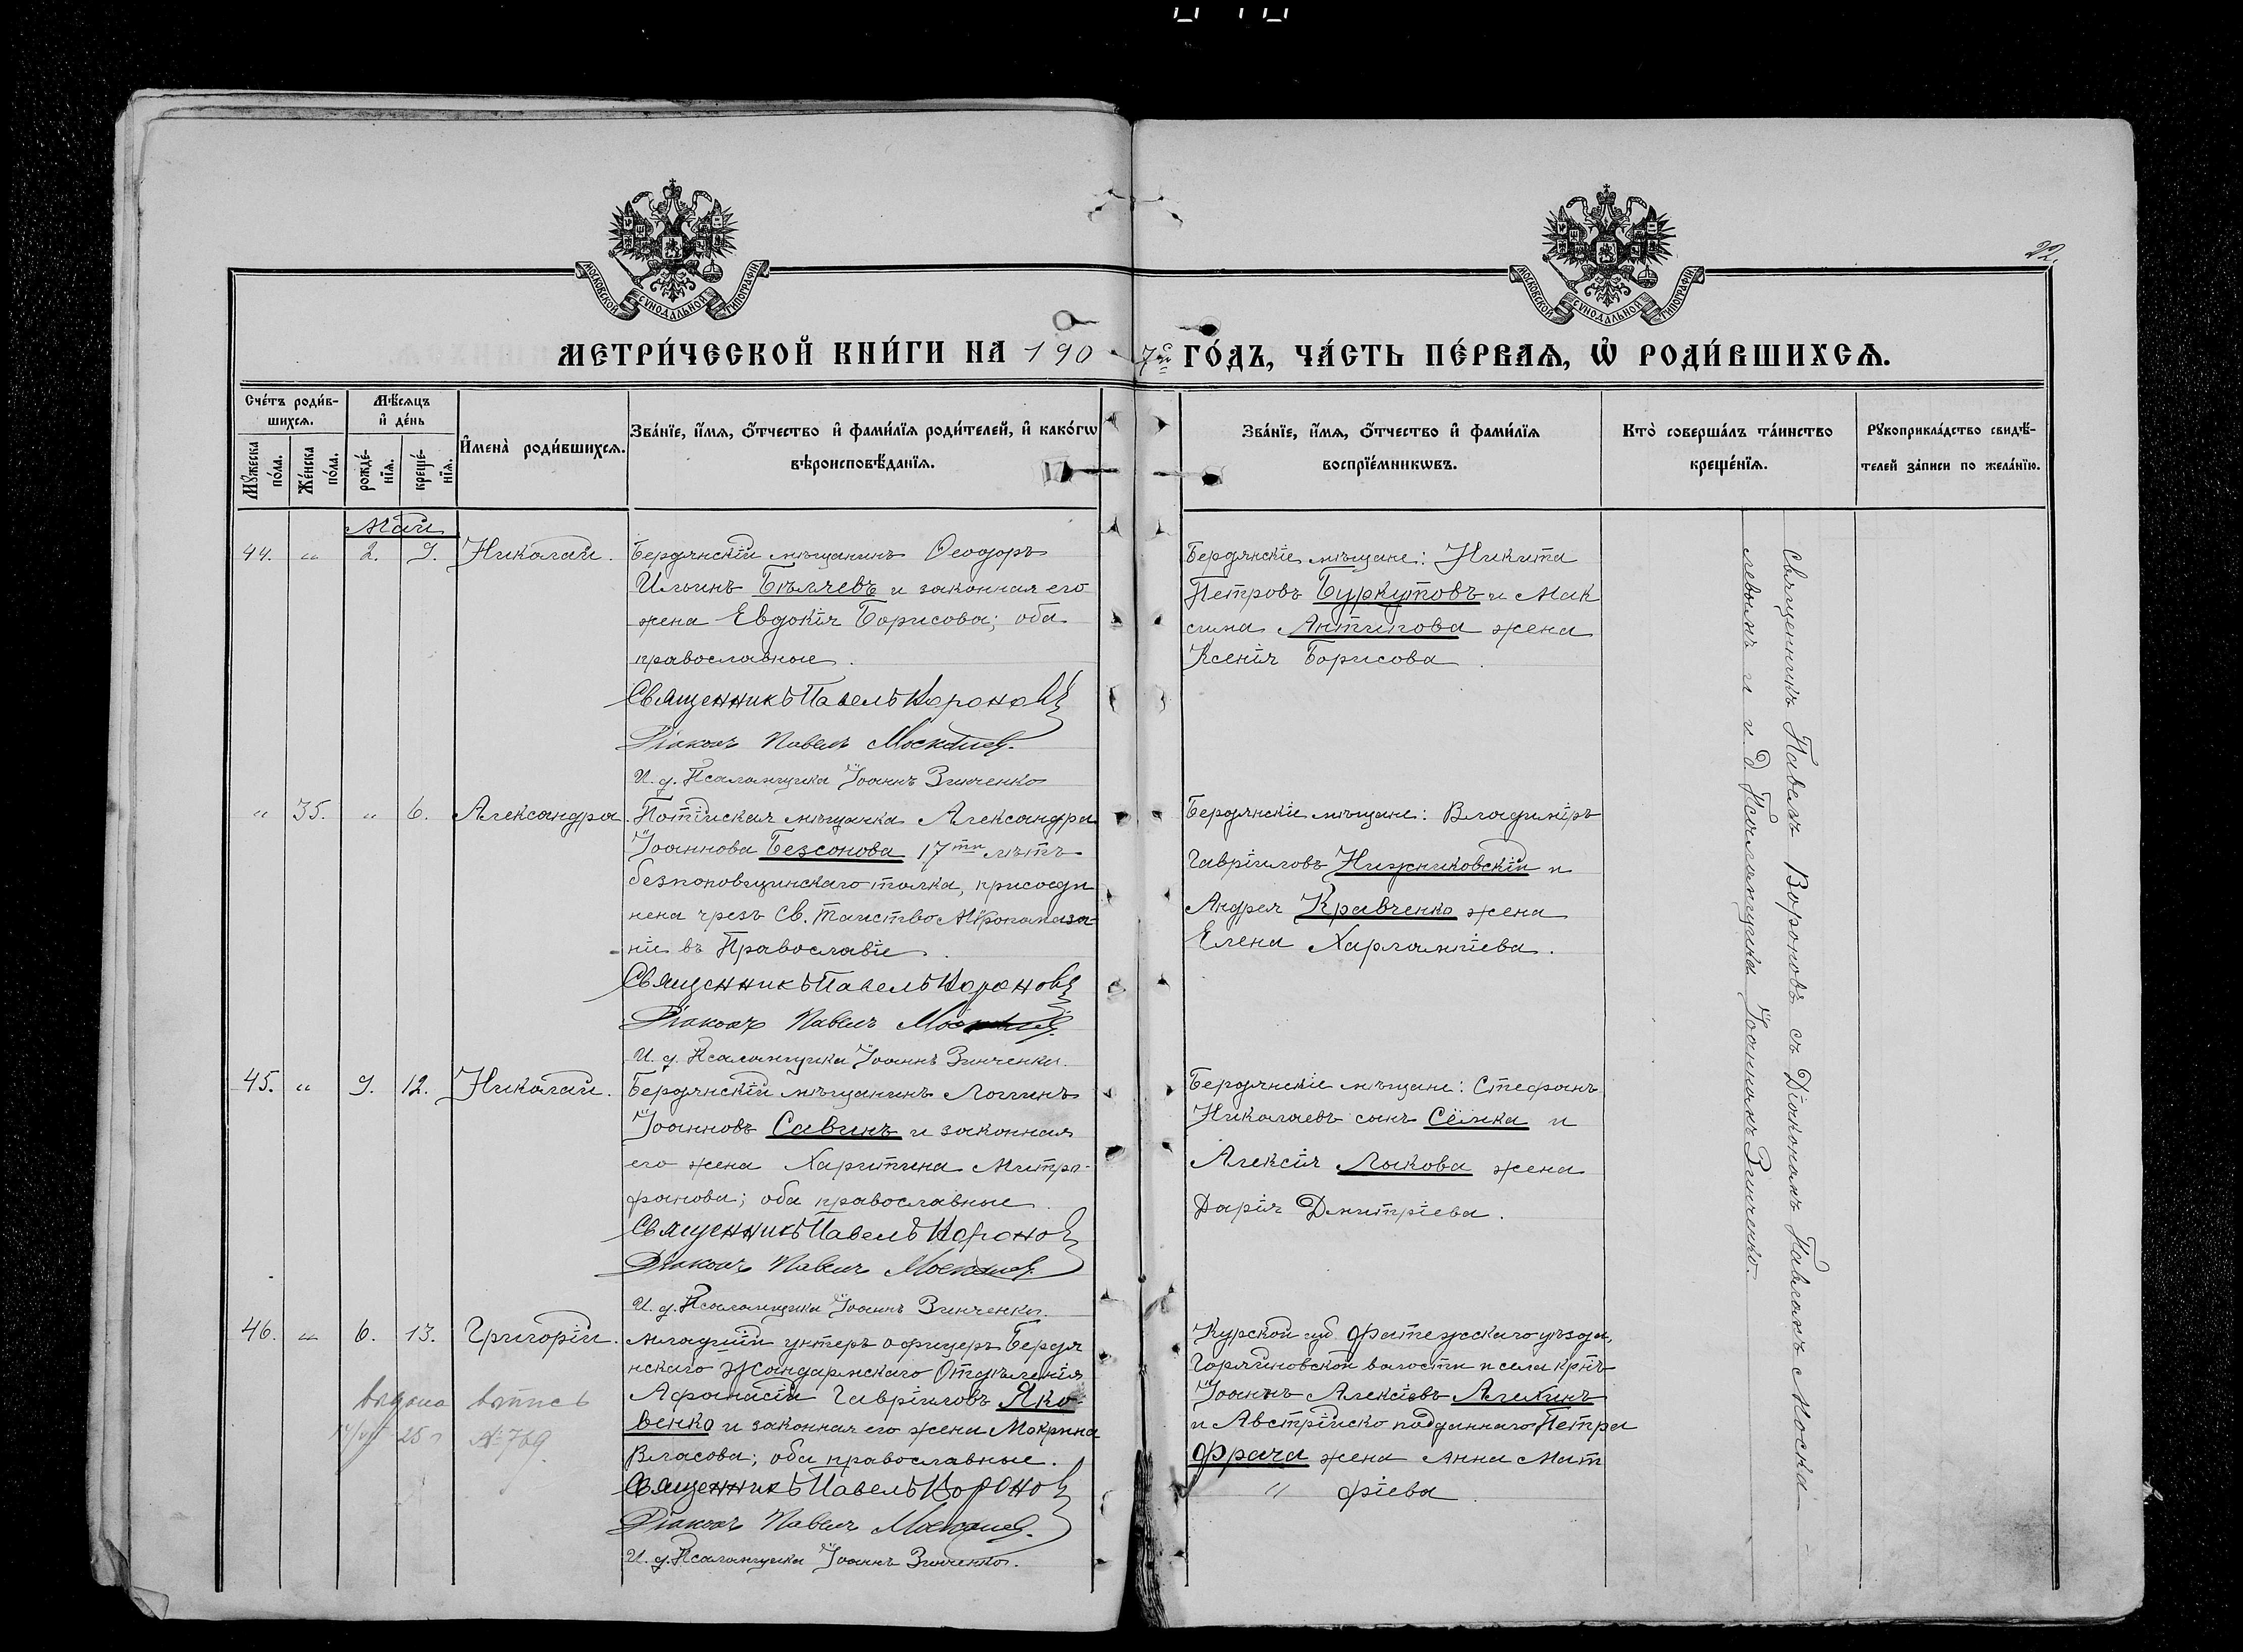 МОСКОВСКОЙ СѴНОДАЛЬНОЙ ТИПОГРАФІИ
МОСКОВСКОЙ СѴНОДАЛЬНОЙ ТИПОГРАФІИ
22.
МЕТРИ́ЧЕСКОЙ КНИ́ГИ НА 1907й ГО́ДЪ, ЧА́СТЬ ПЕ́РВАѦ, Ѡ҆ РОДИ́ВШИХСѦ.
Сче́тъ роди́в-
шихсѧ.
Мꙋ́жеска по́ла.
Же́нска по́ла.
Мѣ́сѧцъ
и҆ де́нь
рожде́-нїѧ.
креще́-нїѧ.
И҆мена̀ роди́вшихсѧ.
Зва́нїе, и҆́мѧ, ѻ҆́тчество и҆ фами́лїѧ роди́телей, и҆ како́гѡ
вѣроисповѣ́данїѧ.
Зва́нїе, и҆́мѧ, ѻ҆́тчество и҆ фами́лїѧ
воспрїе́мникѡвъ.
Кто̀ соверша́лъ та́инство
креще́нїѧ.
Рꙋкоприкла́дство свидѣ́-
телей за́писи по жела́нїю.
Май
44. " 2. 9. Николай.
Бердянскій мѣщанинъ Ѳеодоръ
Ильинъ Бѣлчевъ и законная его
жена Евдокія Борисова; оба
православные.
Священникъ Павелъ Вороновъ
Діаконъ Павелъ Москалев.
И. д. Псаломщика Іоаннъ Зинченко
Бердянскіе мѣщане: Никита
Петровъ Буркутовъ и Мак
сима Антипова жена
Ксенія Борисова.
" 35. " 6. Александра.
Потійская мѣщанка Александра
Іоаннова Безсонова 17ти лѣтъ
безпоповщинскаго толка, присоеди
нена чрезъ Св. Таинство Мѵропомаза-
ніе въ Православіе.
Священникъ Павелъ Вороновъ
Діаконъ Павелъ
И. д. Псаломщика Іоаннъ Зинченко.
Бердянскіе мѣщане: Владиміръ
Гавріиловъ Нижниковскій и
Андрея Кравченко жена
Елена Харлампіева.
45. " 9. 12. Николай.
Бердянскій мѣщанинъ Логгинъ
Іоанновъ Савинъ и законная
его жена Харитина Митро-
фанова; оба православные.
Священникъ Павелъ Вороновъ
Діаконъ Павелъ Москалев.
И. д. Псаломщика Іоаннъ Зинченко.
Бердянскіе мѣщане: Стефанъ
Николаевъ сынъ Сёмка и
Алексія Лыкова жена
Дарія Дмитріева.
46. " 6. 13. Григорій.
Младшій унтеръ офицеръ Бердя
нскаго Жандармскаго Отдѣленія
Аѳанасій Гавріиловъ Яко-
венко и законная его жена Макрина
Власова; оба православные.
Священникъ Павелъ Вороновъ
Діаконъ Павелъ Москалев.
И. д. Псаломщика Іоаннъ Зинченко.
выдана выпись
25 г № 769.
Курской губ Фатежскаго уѣзда,
волости и села крнъ
Іоаннъ Алексіевъ Алехинъ
и Австрійско подданнаго Петра
Фрача жена Анна Мат
" фіева.
Священникъ Павелъ Вороновъ съ Діакономъ Павломъ Моска-
левымъ и и. д. Псаломщика Іоанномъ Зинченко.